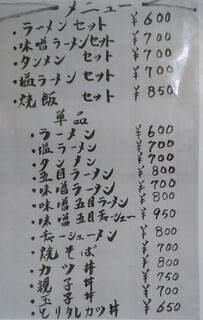 メニュー
・ラーメンセット ¥600
・味噌ラーメンセット ¥700
・タンメン セット ¥700
・塩ラーメンセット ¥700
・焼飯 セット ¥850
単品
・ラーメン ¥600
・塩ラーメン ¥700
・タンメン ¥700
・五目ラーメン ¥800
・味噌ラーメン ¥700
・味噌五目ラーメン ¥800
・味噌五目チャーシュー ¥950
・チャーシューメン ¥800
・焼そば ¥700
・カツ丼 ¥800
・親子丼 ¥750
・玉子丼 ¥700
・とりタレカツ丼 ¥650